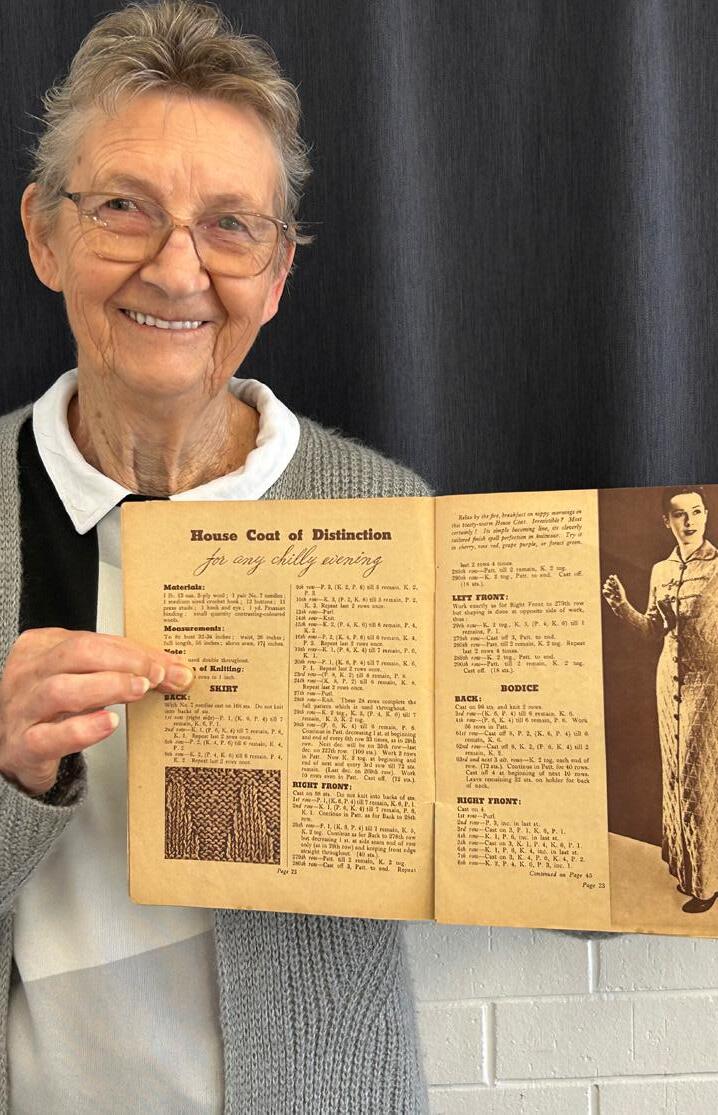 House Coat of Distinction
for any chilly evening
Materials:
1 lb. 13 ozs. 3-ply wool; 1 pair No. 7 needles;
1 medium sized crochet hook; 12 buttons; 11
press studs; 1 hook and eye; 1 yd. Prussian
binding; small quantity contrasting-coloured
wools.
Measurements:
To fit bust 32-34 inches; waist, 26 inches;
full length, 56 inches; sleeve seam, 17½ inches.
Note:
used double throughout.
of Knitting:
rows to 1 inch.
SKIRT
BACK:
With No. 7 needles cast on 168 sts. Do not knit
into backs of sts.
1st row (right side)—P. 1, (K. 6, P. 4) till 7
remain, K. 6, P. 1.
2nd row—K. 1, (P. 6, K. 4) till 7 remain, P. 6,
K. 1. Repeat last 2 rows once.
5th row—P. 2, (K. 4, P. 6) till 6 remain, K. 4,
P. 2.
6th row—K. 2, (P. 4, K. 6) till 6 remain, P. 4,
K. 2. Repeat last 2 rows once.
9th row—P. 3, (K. 2, P. 8) till 5 remain, K. 2,
P. 3.
10th row—K. 3, (P. 2, K. 8) till 5 remain, P. 2,
K. 3. Repeat last 2 rows once.
13th row—Purl.
14th row—Knit.
15th row—K. 2, (P. 4, K. 6) till 6 remain, P. 4,
K. 2.
16th row—P. 2, (K. 4, P. 6) till 6 remain, K. 4,
P. 2. Repeat last 2 rows once.
19th row—K. 1, (P. 6, K. 4) till 7 remain, P. 6,
K. 1.
20th row—P. 1, (K. 6, P. 4) till 7 remain, K. 6,
P. 1. Repeat last 2 rows once.
23rd row—(P. 8, K. 2) till 8 remain, P. 8.
24th row—(K. 8, P. 2) till 8 remain, K. 8.
Repeat last 2 rows once.
27th row—Purl.
28th row—Knit. These 28 rows complete the
full pattern which is used throughout.
29th row—K. 2 tog., K. 5, (P. 4, K. 6) till 7
remain, K. 5, K. 2 tog.
30th row—(P. 6, K. 4) till 6 remain, P. 6.
Continue in Patt. decreasing 1 st. at beginning
and end of every 6th row 33 times, as in 29th
row. Next dec. will be on 35th row—last
dec. on 227th row (100 sts.). Work 2 rows
in Patt. Now K. 2 tog. at beginning and
end of next and every 3rd row till 72 sts.
remain. (Last dec. on 269th row). Work
10 rows even in Patt. Cast off. (72 sts.).
RIGHT FRONT:
Cast on 88 sts. Do not knit into backs of sts.
1st row—P. 1, (K. 6, P. 4) till 7 remain, K. 6, P. 1.
2nd row—K. 1, (P. 6, K. 4) till 7 remain, P. 6,
K. 1. Continue in Patt. as for Back to 28th
row.
29th row—P. 1, (K. 6, P. 4) till 7 remain, K. 5,
K. 2 tog. Continue as for Back to 278th row
but decreasing 1 st. at side seam end of row
only (as in 29th row) and keeping front edge
straight throughout. (40 sts.).
279th row—Patt. till 2 remain, K. 2 tog.
280th row—Cast off 3, Patt. to end. Repeat
Page 22
Relax by the fire, breakfast on nippy mornings in
this toasty-warm House Coat. Irresistible? Most
certainly! In simple becoming line, its cleverly
tailored finish spell perfection in knitwear. Try it
in cherry, rose red, grape purple, or forest green.
last 2 rows 4 times.
289th row—Patt. till 2 remain, K. 2 tog.
290th row—K. 2 tog., Patt. to end. Cast off.
(18 sts.).
LEFT FRONT:
Work exactly as for Right Front to 279th row
but shaping is done at opposite side of work,
thus:
29th row—K. 2 tog., K. 5, (P. 4, K. 6) till 1
remains, P. 1.
279th row—Cast off 3, Patt. to end.
280th row—Patt. till 2 remain, K. 2 tog. Repeat
last 2 rows 4 times.
289th row—K. 2 tog., Patt. to end.
290th row—Patt. till 2 remain, K. 2 tog.
Cast off. (18 sts.).
BODICE
BACK:
Cast on 96 sts. and knit 2 rows.
3rd row—(K. 6, P. 4) till 6 remain, K. 6.
4th row—(P. 6, K. 4) till 6 remain, P. 6. Work
56 rows in Patt.
61st row—Cast off 8, P. 2, (K. 6, P. 4) till 6
remain, K. 6.
62nd row—Cast off 8, K. 2, (P. 6, K. 4) till 2
remain, K. 2.
63rd and next 3 alt. rows—K. 2 tog. each end of
row. (72 sts.). Continue in Patt. for 40 rows.
Cast off 4 at beginning of next 10 rows.
Leave remaining 32 sts. on holder for back
of neck.
RIGHT FRONT:
Cast on 4.
1st row—Purl.
2nd row—P. 3, inc. in last st.
3rd row—Cast on 3, P. 1, K. 6, P. 1.
4th row—K. 1, P. 6, inc. in last st.
5th row—Cast on 3, K. 1, P. 4, K. 6, P. 1.
6th row—K. 1, P. 6, K. 4, inc. in last st.
7th row—Cast on 3, K. 4, P. 6, K. 4, P. 2.
8th row—K. 2, P. 4, K. 6, P. 3, inc. 1.
Continued on Page 45
Page 23